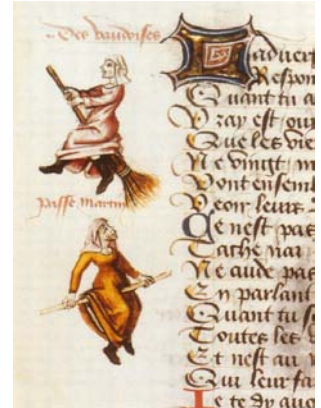 Des vaudoises
passe martin
Ladvert
Respon
Quant tu a
Vray est quil
Que les viel
Ne vingt ne
Vont ensemb
Veoir leurs
Ce nest pas
Tache nar
Ne aude pas
En parlant
Quant tu s
Toutes les v
Et nest au
Qui leur fa
Je te dy auo